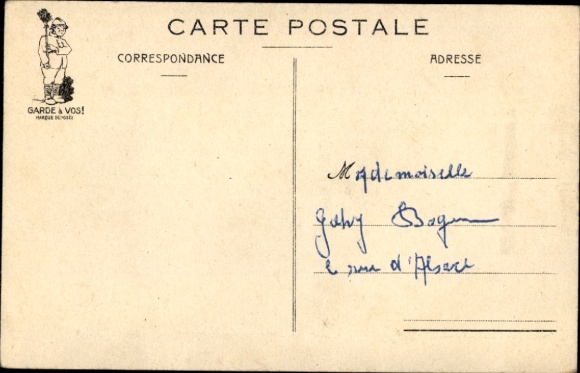 CARTE POSTALE
CORRESPONDANCE
ADRESSE
GARDE à VOS!
MARQUE DÉPOSÉE
Mademoiselle
Gaby
2 rue d'Alsace